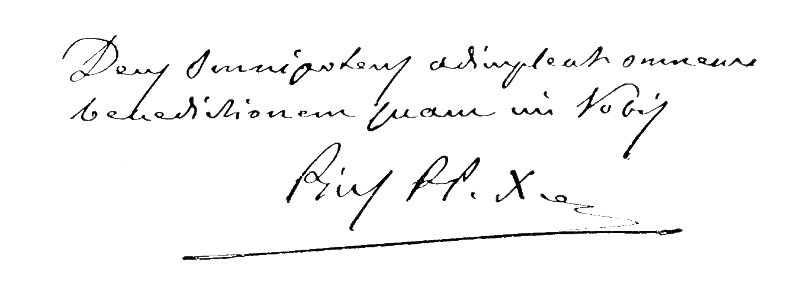 Deus Omnipotens adimpleat omnem
benedictionem quam in Vobis
Pius PP. X.